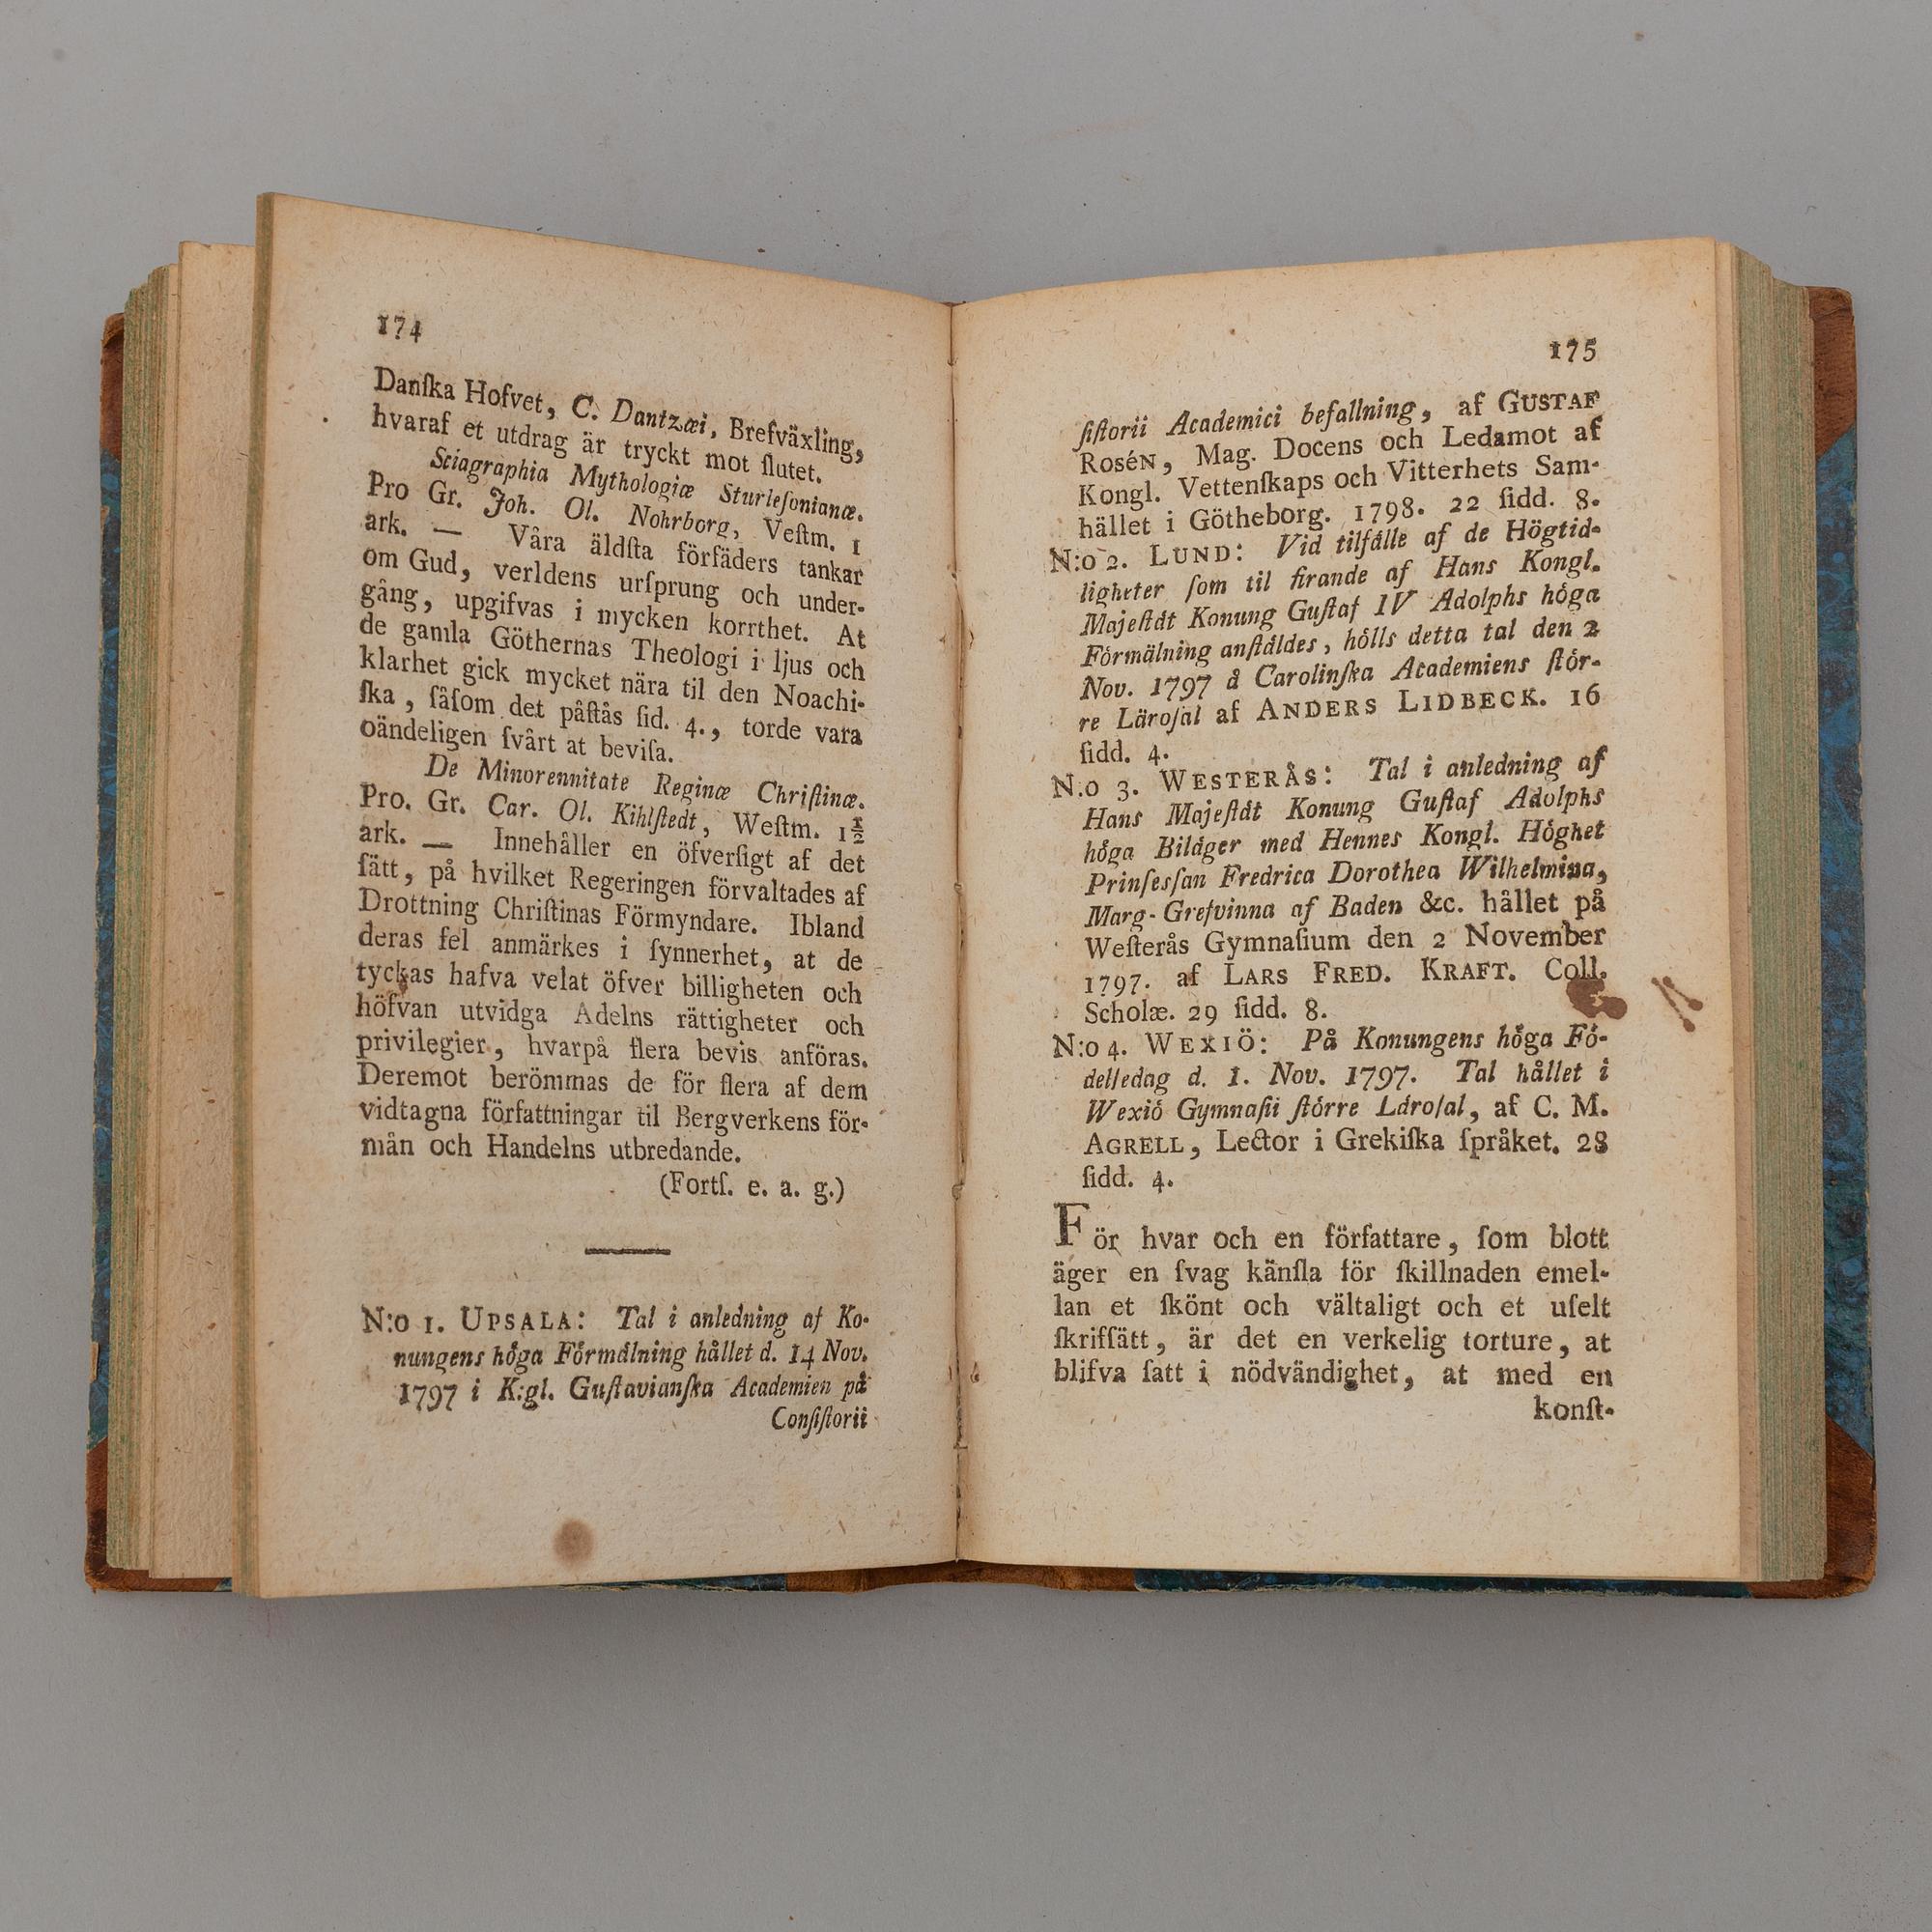 174
Danſka Hofvet, C. Dantzæi, Brefväxling,
hvaraf et utdrag är tryckt mot ſlutet.
Sciagraphia Mythologiæ Sturleſonianæ.
Pro Gr. Joh. Ol. Nohrborg, Veſtm. 1
ark. — Våra äldſta förfäders tankar
om Gud, verldens urſprung och under-
gång, upgifvas i mycken korrthet. At
de gamla Göthernas Theologi i ljus och
klarhet gick mycket nära til den Noachi-
ſka, ſåſom det påſtås ſid. 4., torde vara
oändeligen ſvårt at beviſa.
De Minorennitate Reginæ Chriſtinæ.
Pro. Gr. Car. Ol. Kihlſtedt, Weſtm. 1½
ark. — Innehåller en öfverſigt af det
ſätt, på hvilket Regeringen förvaltades af
Drottning Chriſtinas Förmyndare. Ibland
deras fel anmärkes i ſynnerhet, at de
tyckas hafva velat öfver billigheten och
höfvan utvidga Adelns rättigheter och
privilegier, hvarpå flera bevis anföras.
Deremot berömmas de för flera af dem
vidtagna författningar til Bergverkens för-
mån och Handelns utbredande.
(Fortſ. e. a. g.)
N:o 1. UPSALA: Tal i anledning af Ko-
nungens höga Förmälning hållet d. 14 Nov.
1797 i K:gl. Guſtavianſka Academien på
Conſiſtorii
175
ſiſtorii Academici befallning, af GUSTAF
ROSÉN, Mag. Docens och Ledamot af
Kongl. Vettenſkaps och Vitterhets Sam-
hället i Götheborg. 1798. 22 ſidd. 8.
N:o 2. LUND: Vid tilfälle af de Högtid-
ligheter ſom til firande af Hans Kongl.
Majeſtät Konung Guſtaf IV Adolphs höga
Förmälning anſtäldes, hölls detta tal den 2
Nov. 1797 å Carolinſka Academiens ſtör-
re Läroſal af ANDERS LIDBECK. 16
ſidd. 4.
N:o 3. WESTERÅS: Tal i anledning af
Hans Majeſtät Konung Guſtaf Adolphs
höga Biläger med Hennes Kongl. Höghet
Prinſesſan Fredrica Dorothea Wilhelmina,
Marg-Grefvinna af Baden &c. hållet på
Weſterås Gymnaſium den 2 November
1797. af LARS FRED. KRAFT. Coll.
Scholæ. 29 ſidd. 8.
N:o 4. WEXIÖ: På Konungens höga Fö-
delſedag d. 1. Nov. 1797. Tal hållet i
Wexiö Gymnaſii ſtörre Läroſal, af C. M.
AGRELL, Lector i Grekiſka ſpråket. 28
ſidd. 4.
För hvar och en författare, ſom blott
äger en ſvag känſla för ſkillnaden emel-
lan et ſkönt och vältaligt och et uſelt
ſkrifſätt, är det en verkelig torture, at
blifva ſatt i nödvändighet, at med en
konſt-